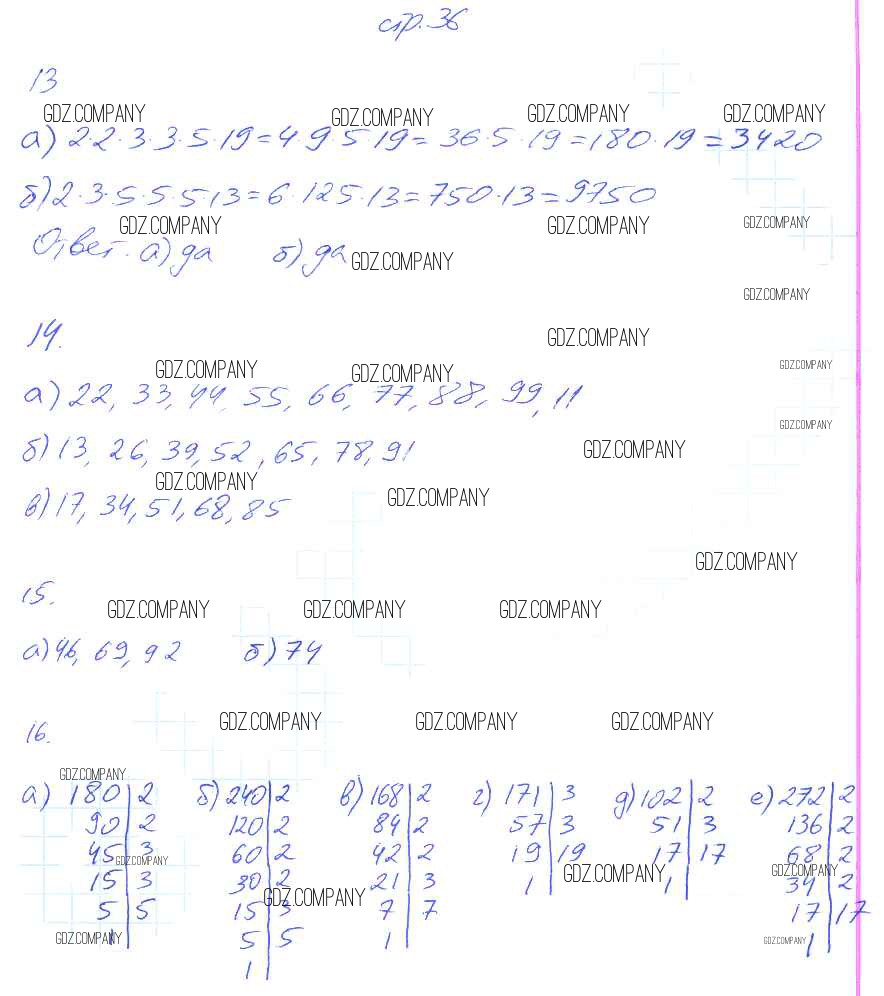 стр. 36
13
GDZ.COMPANY GDZ.COMPANY GDZ.COMPANY GDZ.COMPANY
а) 2·2·3·3·5·19=4·9·5·19=36·5·19=180·19=3420
б) 2·3·5·5·5·13=6·125·13=750·13=9750
GDZ.COMPANY GDZ.COMPANY GDZ.COMPANY
Ответ: а) да б) да GDZ.COMPANY
GDZ.COMPANY
14. GDZ.COMPANY
GDZ.COMPANY GDZ.COMPANY GDZ.COMPANY
а) 22, 33, 44, 55, 66, 77, 88, 99, 11
GDZ.COMPANY
б) 13, 26, 39, 52, 65, 78, 91 GDZ.COMPANY
GDZ.COMPANY GDZ.COMPANY
в) 17, 34, 51, 68, 85
GDZ.COMPANY
15.
GDZ.COMPANY GDZ.COMPANY GDZ.COMPANY
а) 46, 69, 92 б) 74
16. GDZ.COMPANY GDZ.COMPANY GDZ.COMPANY
GDZ.COMPANY
а) 180|2 б) 240|2 в) 168|2 г) 171|3 д) 102|2 е) 272|2
90|2 120|2 84|2 57|3 51|3 136|2
45|3 60|2 42|2 19|19 17|17 68|2
GDZ.COMPANY GDZ.COMPANY GDZ.COMPANY
15|3 30|2 21|3 1 1 34|2
GDZ.COMPANY
5|5 15|3 7|7 17|17
GDZ.COMPANY GDZ.COMPANY
1 5|5 1 1
1